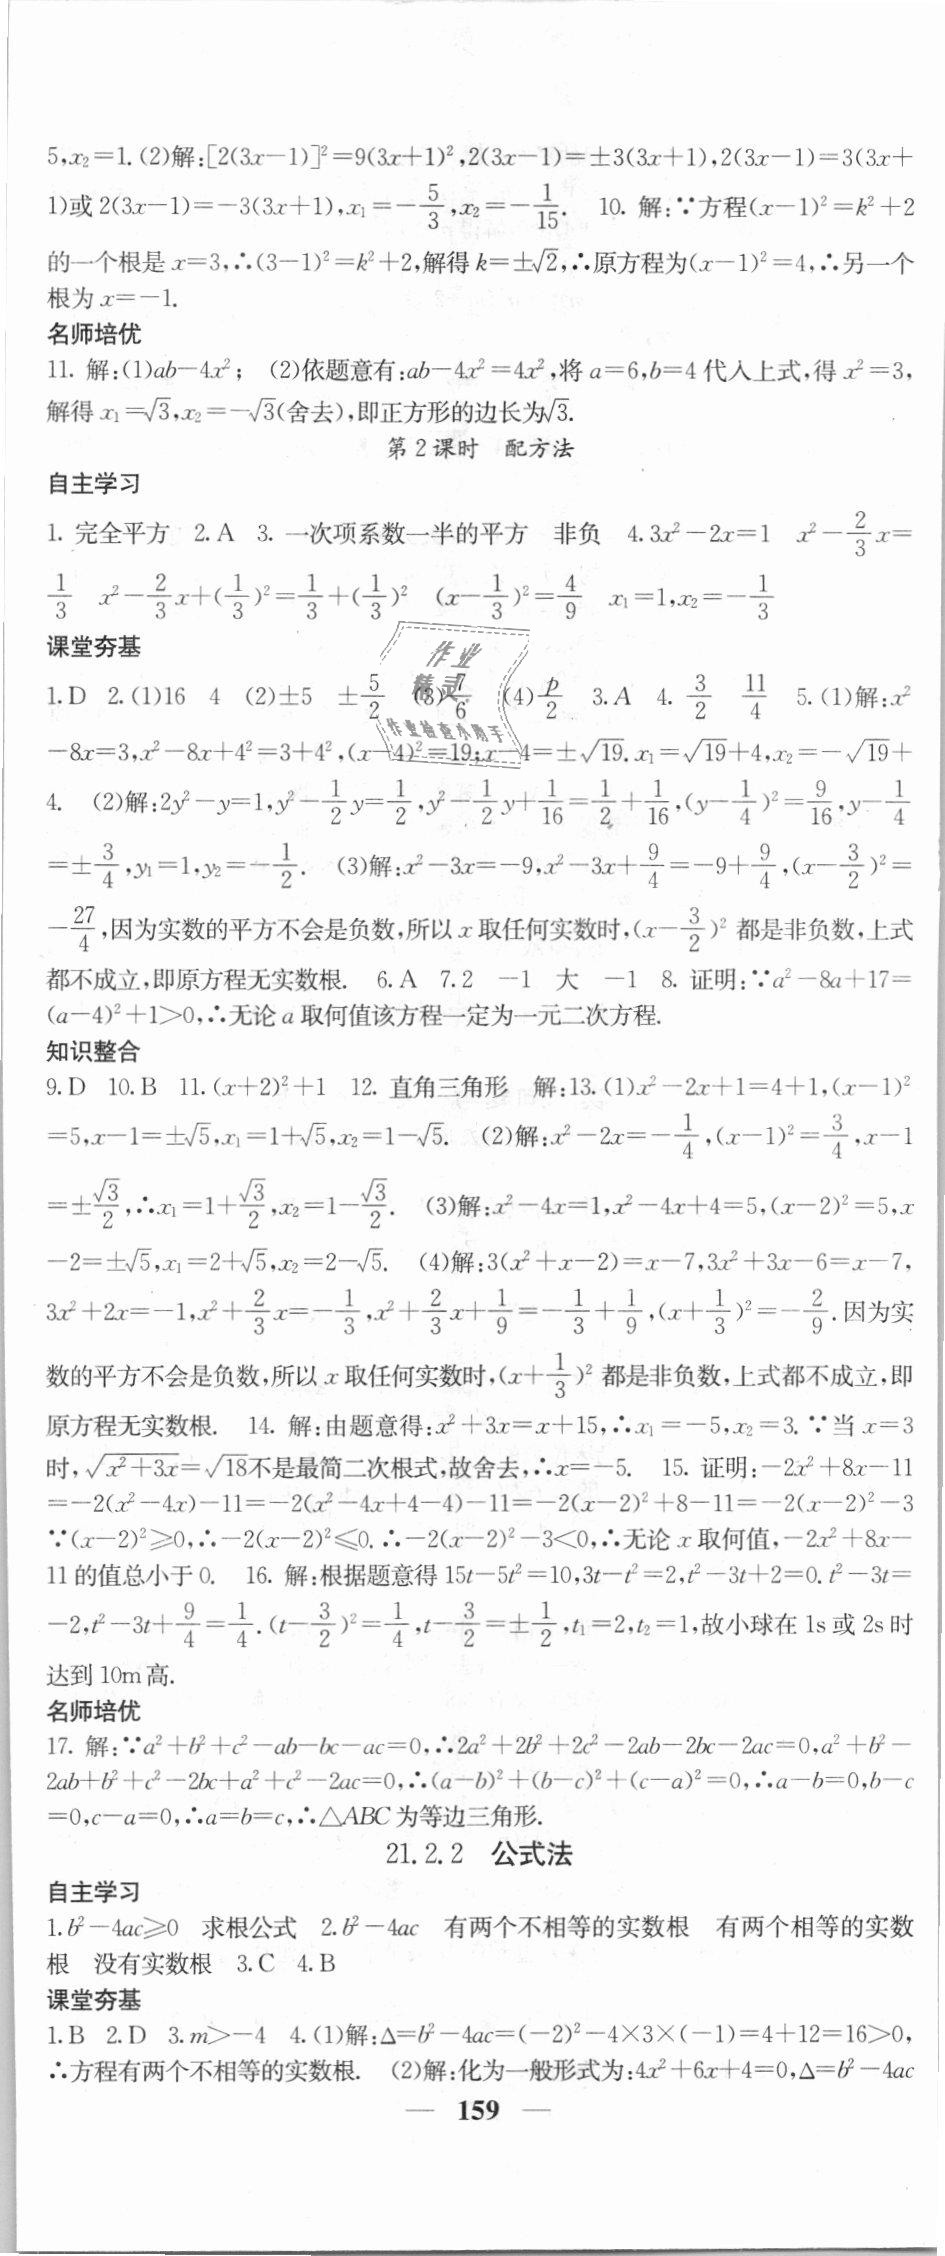 5,x₂=1. (2)解:[2(3x-1)]²=9(3x+1)²,2(3x-1)=±3(3x+1),2(3x-1)=3(3x+
1)或2(3x-1)=-3(3x+1),x₁=-5/3,x₂=-1/15. 10. 解:∵方程(x-1)²=k²+2
的一个根是x=3,∴(3-1)²=k²+2,解得k=±√2,∴原方程为(x-1)²=4,∴另一个
根为x=-1.
名师培优
11. 解:(1)ab-4x²; (2)依题意有:ab-4x²=4x²,将a=6,b=4代入上式,得x²=3,
解得x₁=√3,x₂=-√3(舍去),即正方形的边长为√3.
第2课时 配方法
自主学习
1. 完全平方 2. A 3. 一次项系数一半的平方 非负 4. 3x²-2x=1 x²-2/3x=
1/3 x²-2/3x+(1/3)²=1/3+(1/3)² (x-1/3)²=4/9 x₁=1,x₂=-1/3
课堂夯基
1. D 2. (1)16 4 (2)±5 ±5/2 (3)7/6 (4)p/2 3. A 4. 3/2 11/4 5. (1)解:x²
-8x=3,x²-8x+4²=3+4²,(x-4)²=19;x-4=±√19. x₁=√19+4,x₂=-√19+
4. (2)解:2y²-y=1,y²-1/2y=1/2,y²-1/2y+1/16=1/2+1/16,(y-1/4)²=9/16,y-1/4
=±3/4,y₁=1,y₂=-1/2. (3)解:x²-3x=-9,x²-3x+9/4=-9+9/4,(x-3/2)²=
-27/4,因为实数的平方不会是负数,所以x取任何实数时,(x-3/2)²都是非负数,上式
都不成立,即原方程无实数根. 6. A 7. 2 -1 大 -1 8. 证明:∵a²-8a+17=
(a-4)²+1>0,∴无论a取何值该方程一定为一元二次方程.
知识整合
9. D 10. B 11. (x+2)²+1 12. 直角三角形 解:13. (1)x²-2x+1=4+1,(x-1)²
=5,x-1=±√5,x₁=1+√5,x₂=1-√5. (2)解:x²-2x=-1/4,(x-1)²=3/4,x-1
=±√3/2,∴x₁=1+√3/2,x₂=1-√3/2. (3)解:x²-4x=1,x²-4x+4=5,(x-2)²=5,x
-2=±√5,x₁=2+√5,x₂=2-√5. (4)解:3(x²+x-2)=x-7,3x²+3x-6=x-7,
3x²+2x=-1,x²+2/3x=-1/3,x²+2/3x+1/9=-1/3+1/9,(x+1/3)²=-2/9. 因为实
数的平方不会是负数,所以x取任何实数时,(x+1/3)²都是非负数,上式都不成立,即
原方程无实数根. 14. 解:由题意得:x²+3x=x+15,∴x₁=-5,x₂=3. ∵当x=3
时,√(x²+3x)=√18不是最简二次根式,故舍去,∴x=-5. 15. 证明:-2x²+8x-11
=-2(x²-4x)-11=-2(x²-4x+4-4)-11=-2(x-2)²+8-11=-2(x-2)²-3
∵(x-2)²⩾0,∴-2(x-2)²⩽0. ∴-2(x-2)²-3<0,∴无论x取何值,-2x²+8x-
11的值总小于0. 16. 解:根据题意得15t-5t²=10,3t-t²=2,t²-3t+2=0. t²-3t=
-2,t²-3t+9/4=1/4. (t-3/2)²=1/4,t-3/2=±1/2,t₁=2,t₂=1,故小球在1s或2s时
达到10m高.
名师培优
17. 解:∵a²+b²+c²-ab-bc-ac=0,∴2a²+2b²+2c²-2ab-2bc-2ac=0,a²+b²-
2ab+b²+c²-2bc+a²+c²-2ac=0,∴(a-b)²+(b-c)²+(c-a)²=0,∴a-b=0,b-c
=0,c-a=0,∴a=b=c,∴△ABC为等边三角形.
21.2.2 公式法
自主学习
1. b²-4ac⩾0 求根公式 2. b²-4ac 有两个不相等的实数根 有两个相等的实数
根 没有实数根 3. C 4. B
课堂夯基
1. B 2. D 3. m>-4 4. (1)解:Δ=b²-4ac=(-2)²-4×3×(-1)=4+12=16>0,
∴方程有两个不相等的实数根. (2)解:化为一般形式为:4x²+6x+4=0,Δ=b²-4ac
— 159 —
作业
精灵
作业检查小助手